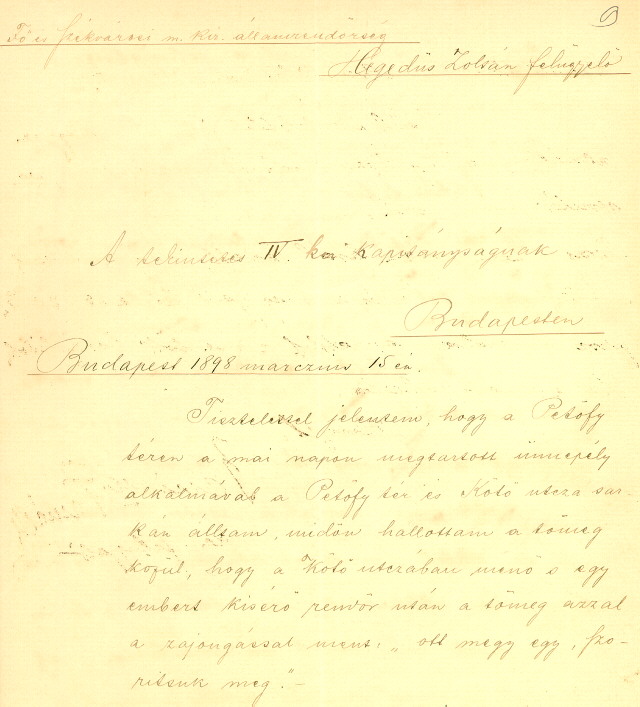 9
Fő és székvárosi m. kir. államrendőrség
Hegedüs Zoltán felügyelő
A tekintetes IV. ker kapitányságnak
Budapesten
Budapest 1898 marczius 15 én.
Tisztelettel jelentem, hogy a Petőfy
téren a mai napon megtartott ünnepély
alkalmával a Petőfy tér és Kötő utcza sar-
kan álltam, midőn hallottam a tömeg
közül, hogy a Kötő utczában menő s egy
embert kisérő rendőr után a tömeg azzal
a zajongással ment: „ott megy egy, szo-
ritsuk meg."–